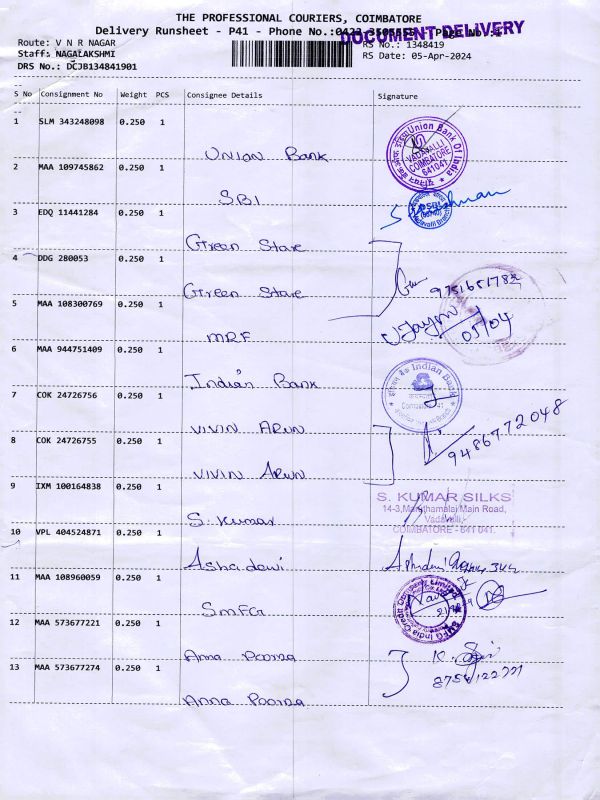 THE PROFESSIONAL COURIERS, COIMBATORE
Delivery Runsheet - P41 - Phone No.:0422
DOCUMENT DELIVERY
Route: V N R NAGAR
RS No.: 1348419
Staff: NAGALAKSHMI
RS Date: 05-Apr-2024
DRS No.: DCJB134841901
S No Consignment No Weight PCS Consignee Details Signature
1 SLM 343248098 0.250 1
Union Bank
Union Bank Of India
VADAVALLI
COIMBATORE
641041
2 MAA 109745862 0.250 1
SBI
3 EDQ 11441284 0.250 1
Green Stare
4 DDG 280053 0.250 1
Green Stare
5 MAA 108300769 0.250 1
MRF
05/04
6 MAA 944751409 0.250 1
Indian Bank
Indian Bank
7 COK 24726756 0.250 1
VIVIN ARUN
9486772048
8 COK 24726755 0.250 1
VIVIN ARUN
9 IXM 100164838 0.250 1
S. Kumar
S. KUMAR SILKS
14-3, Maruthamalai Main Road,
Vadavalli,
COIMBATORE - 641 041.
10 VPL 404524871 0.250 1
Ashadevi
11 MAA 108960059 0.250 1
SMFG
12 MAA 573677221 0.250 1
Anna Poorna
13 MAA 573677274 0.250 1
Anna Poorna